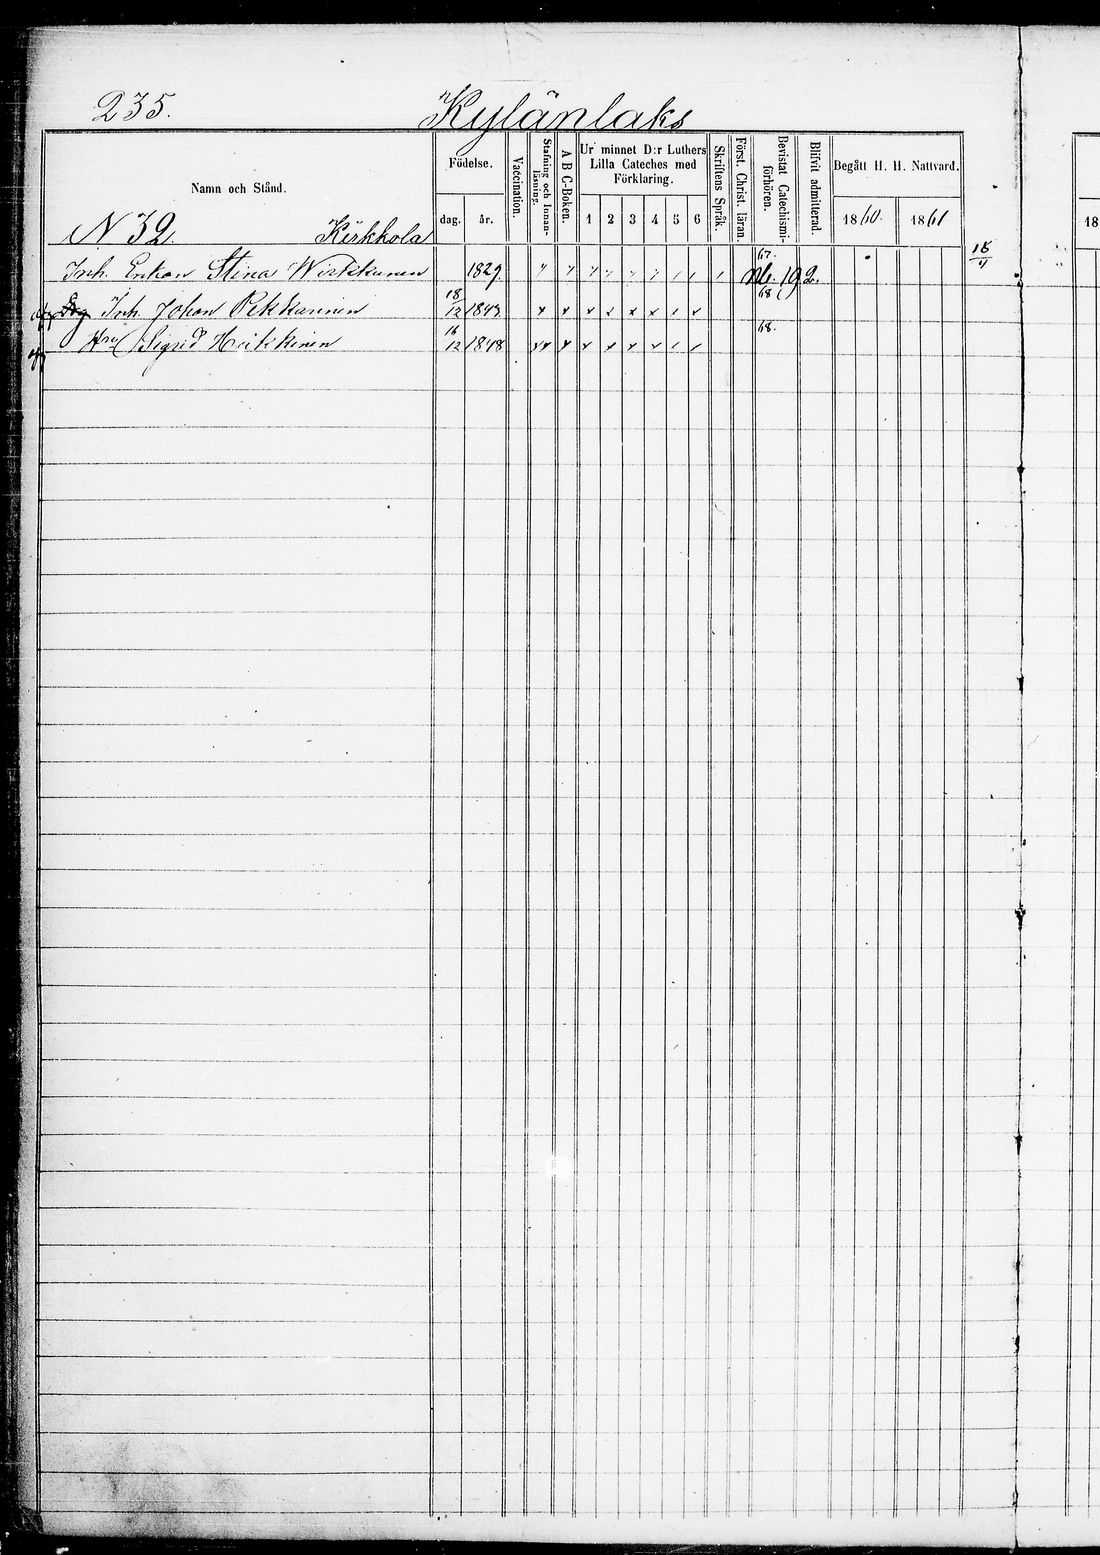 235. Kylänlaks
Namn och Stånd. Födelse. dag. år. Vaccination. Stafning och Innanläsning. A B C-Boken. Ur minnet D:r Luthers Lilla Cateches med Förklaring. 1 2 3 4 5 6 Skriftens Språk. Först. Christ. läran. Bevistat Catechismiförhören. Blifvit admitterad. Begått H. H. Nattvard. 1860. 1861 18
N 32. Kirkkola
Inh. Enkan Stina Wirkkunen 1829. 67. 18/4
Inh. Johan Pekkarinen 18/12 1843. 68
Hru Sigrid Heikkinen 16/12 1848 68.